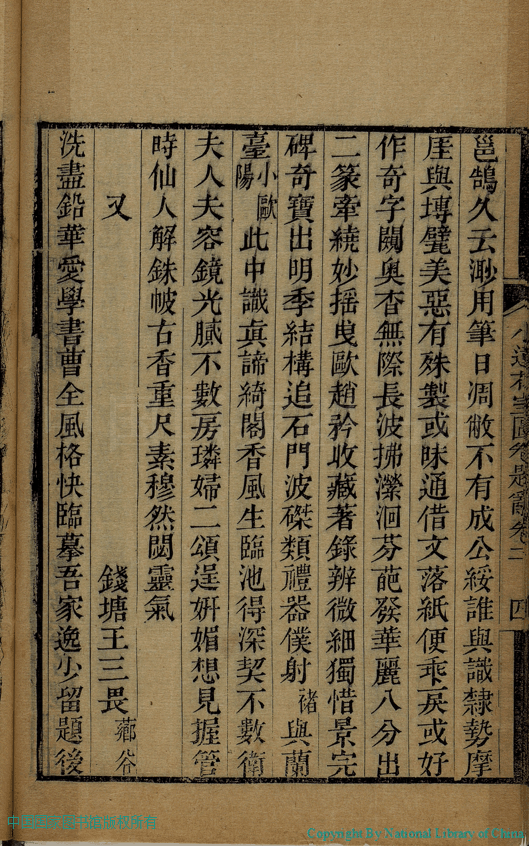 邕鵠久云渺用筆日凋敝不有成公綏誰與識隸勢摩
厓與塼甓美惡有殊製或昧通借文落紙便乖戾或好
作奇字闖奧杳無際長波拂瀠洄芬葩發華麗八分出
二篆牽繞妙揺曳歐趙矜收藏著錄辨微細獨惜景完
碑奇寶出明季結構追石門波磔類禮器僕射褚與蘭
臺小歐陽此中識真諦綺閣香風生臨池得深契不數衛
夫人夫容鏡光膩不數房璘婦二頌逞妍媚想見握管
時仙人解銖帔古香重尺素穆然閟靈氣
又
錢塘王三畏薌谷
洗盡鉛華愛學書曹全風格快臨摹吾家逸少留題後
卷二
四
Copyright By National Library of China